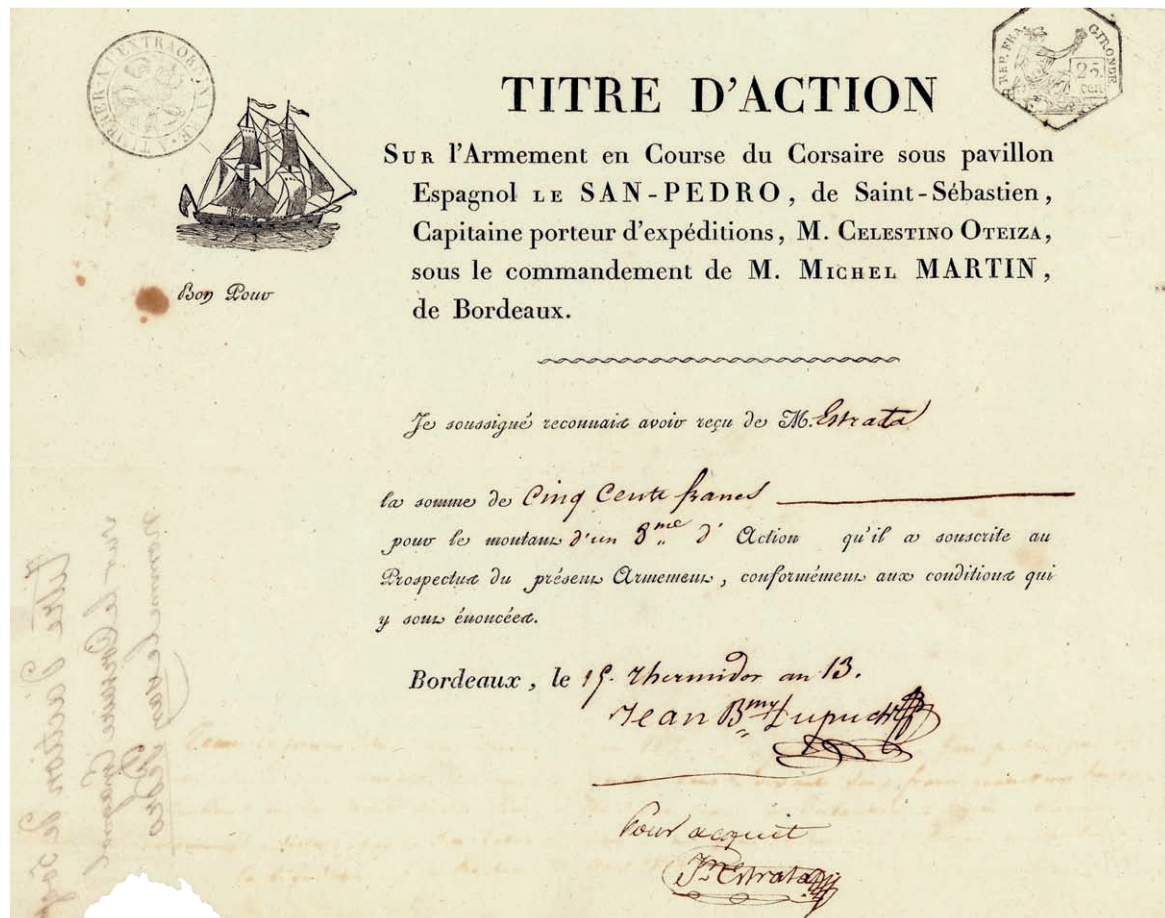 A TIMBRER A L'EXTRAORDINAIRE.
REP. FRA.
GIRONDE
25.
cent
TITRE D'ACTION
SUR l'Armement en Course du Corsaire sous pavillon
Espagnol LE SAN-PEDRO, de Saint-Sébastien,
Capitaine porteur d'expéditions, M. CELESTINO OTEIZA,
sous le commandement de M. MICHEL MARTIN,
de Bordeaux.
Bon Pour
Je soussigné reconnais avoir reçu de M. Estrata
la somme de Cinq Cents francs
pour le montant d'un 8.me d'Action qu'il a souscrite au
Prospectus du présent Armement, conformément aux conditions qui
y sont énoncées.
Bordeaux, le 15. thermidor an 13.
Jean Bmy Dupuch
Pour acquit
Jn Estrata